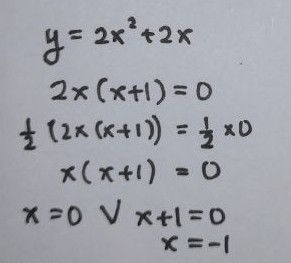 y = 2x² + 2x
2x(x+1) = 0
½ (2x(x+1)) = ½ x0
x(x+1) = 0
x = 0 ∨ x+1 = 0
x = -1